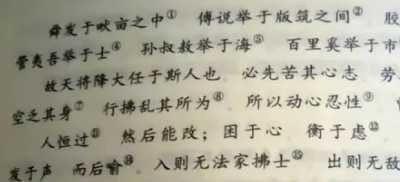 舜发于畎亩之中① 傅说举于版筑之间② 胶
管夷吾举于士④ 孙叔敖举于海⑤ 百里奚举于市
故天将降大任于斯人也 必先苦其心志 劳
空乏其身⑦ 行拂乱其所为⑧ 所以动心忍性⑨
人恒过⑪ 然后能改；困于心 衡于虑⑫
发于声 而后喻⑭ 入则无法家拂士⑮ 出则无敌